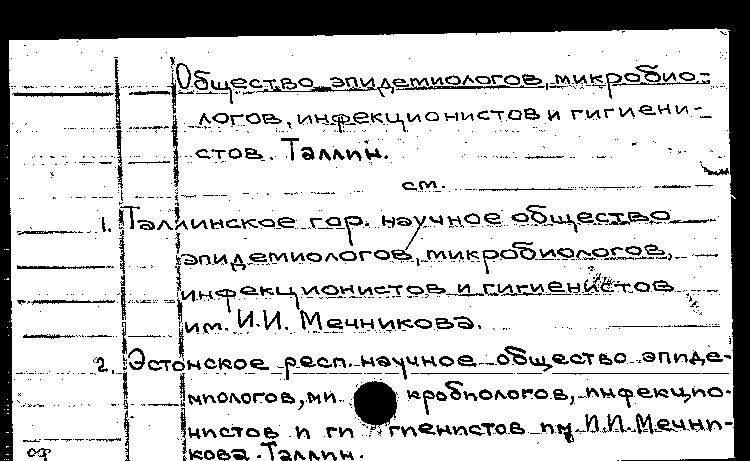 Общество эпидемиологов, микробио-
логов, инфекционистов и гигиени-
стов. Таллин.
см.
1. Таллинское гор. научное общество
эпидемиологов, микробиологов,
инфекционистов и гигиенистов
им. И.И. Мечникова.
2. Эстонское респ. научное общество эпиде-
миологов, ми кробиологов, инфекцио-
нистов и ги гиенистов им. И.И. Мечни-
кова. Таллин.
оф